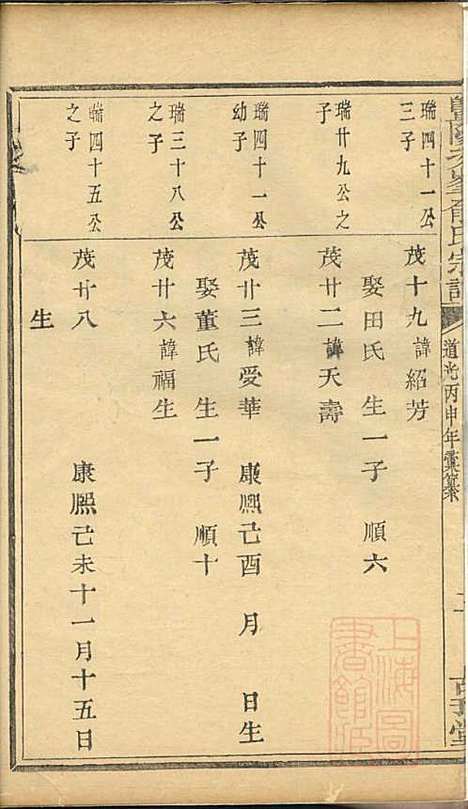 道光丙申年彙纂
瑞四十一公
三子
茂十九諱紹芳
娶田氏 生一子 順六
瑞廿九公之
子
茂廿二諱天壽
瑞四十一公
幼子
茂廿三諱愛華 康熙己酉 月 日生
娶董氏 生一子 順十
瑞三十八公
之子
茂廿六諱福生
瑞四十五公
之子
茂廿八 康熙己未十一月十五日
生
上海圖
書館臧